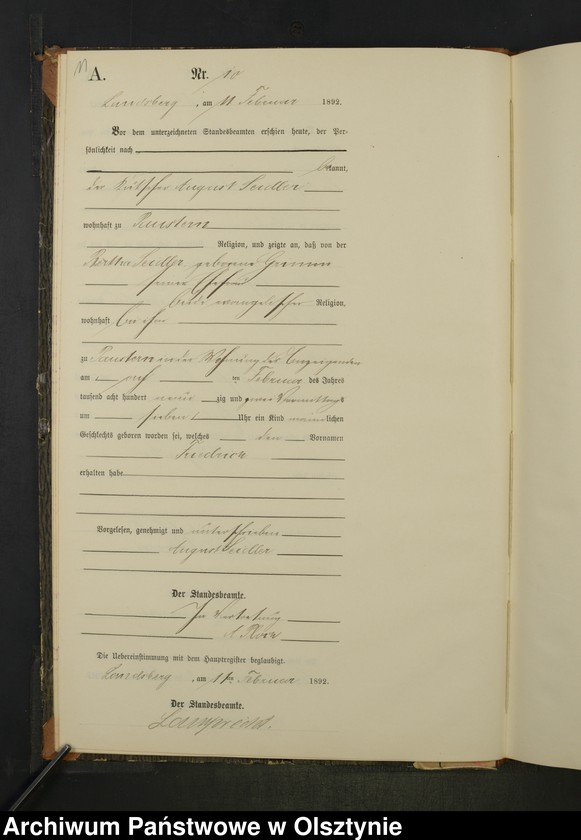 11
A. Nr. 10
Landsberg, am 11 Februar 1892.
Vor dem unterzeichneten Standesbeamten erschien heute, der Per-
sönlichkeit nach
bekannt,
der August Seidler
wohnhaft zu
Religion, und zeigte an, daß von der
Bertha Seidler geborene
seiner Ehefrau
beide evangelischer Religion,
wohnhaft bei ihm
zu in der Wohnung des Anzeigenden
am ten Februar des Jahres
tausend acht hundert neun zig und zwei Vormittags
um sieben Uhr ein Kind männlichen
Geschlechts geboren worden sei, welches den Vornamen
Friedrich
erhalten habe.
Vorgelesen, genehmigt und unterschrieben
August Seidler
Der Standesbeamte.
In Vertretung
Die Uebereinstimmung mit dem Hauptregister beglaubigt.
Landsberg, am 11ten Februar 1892.
Der Standesbeamte.
Lamprecht.
Archiwum Państwowe w Olsztynie